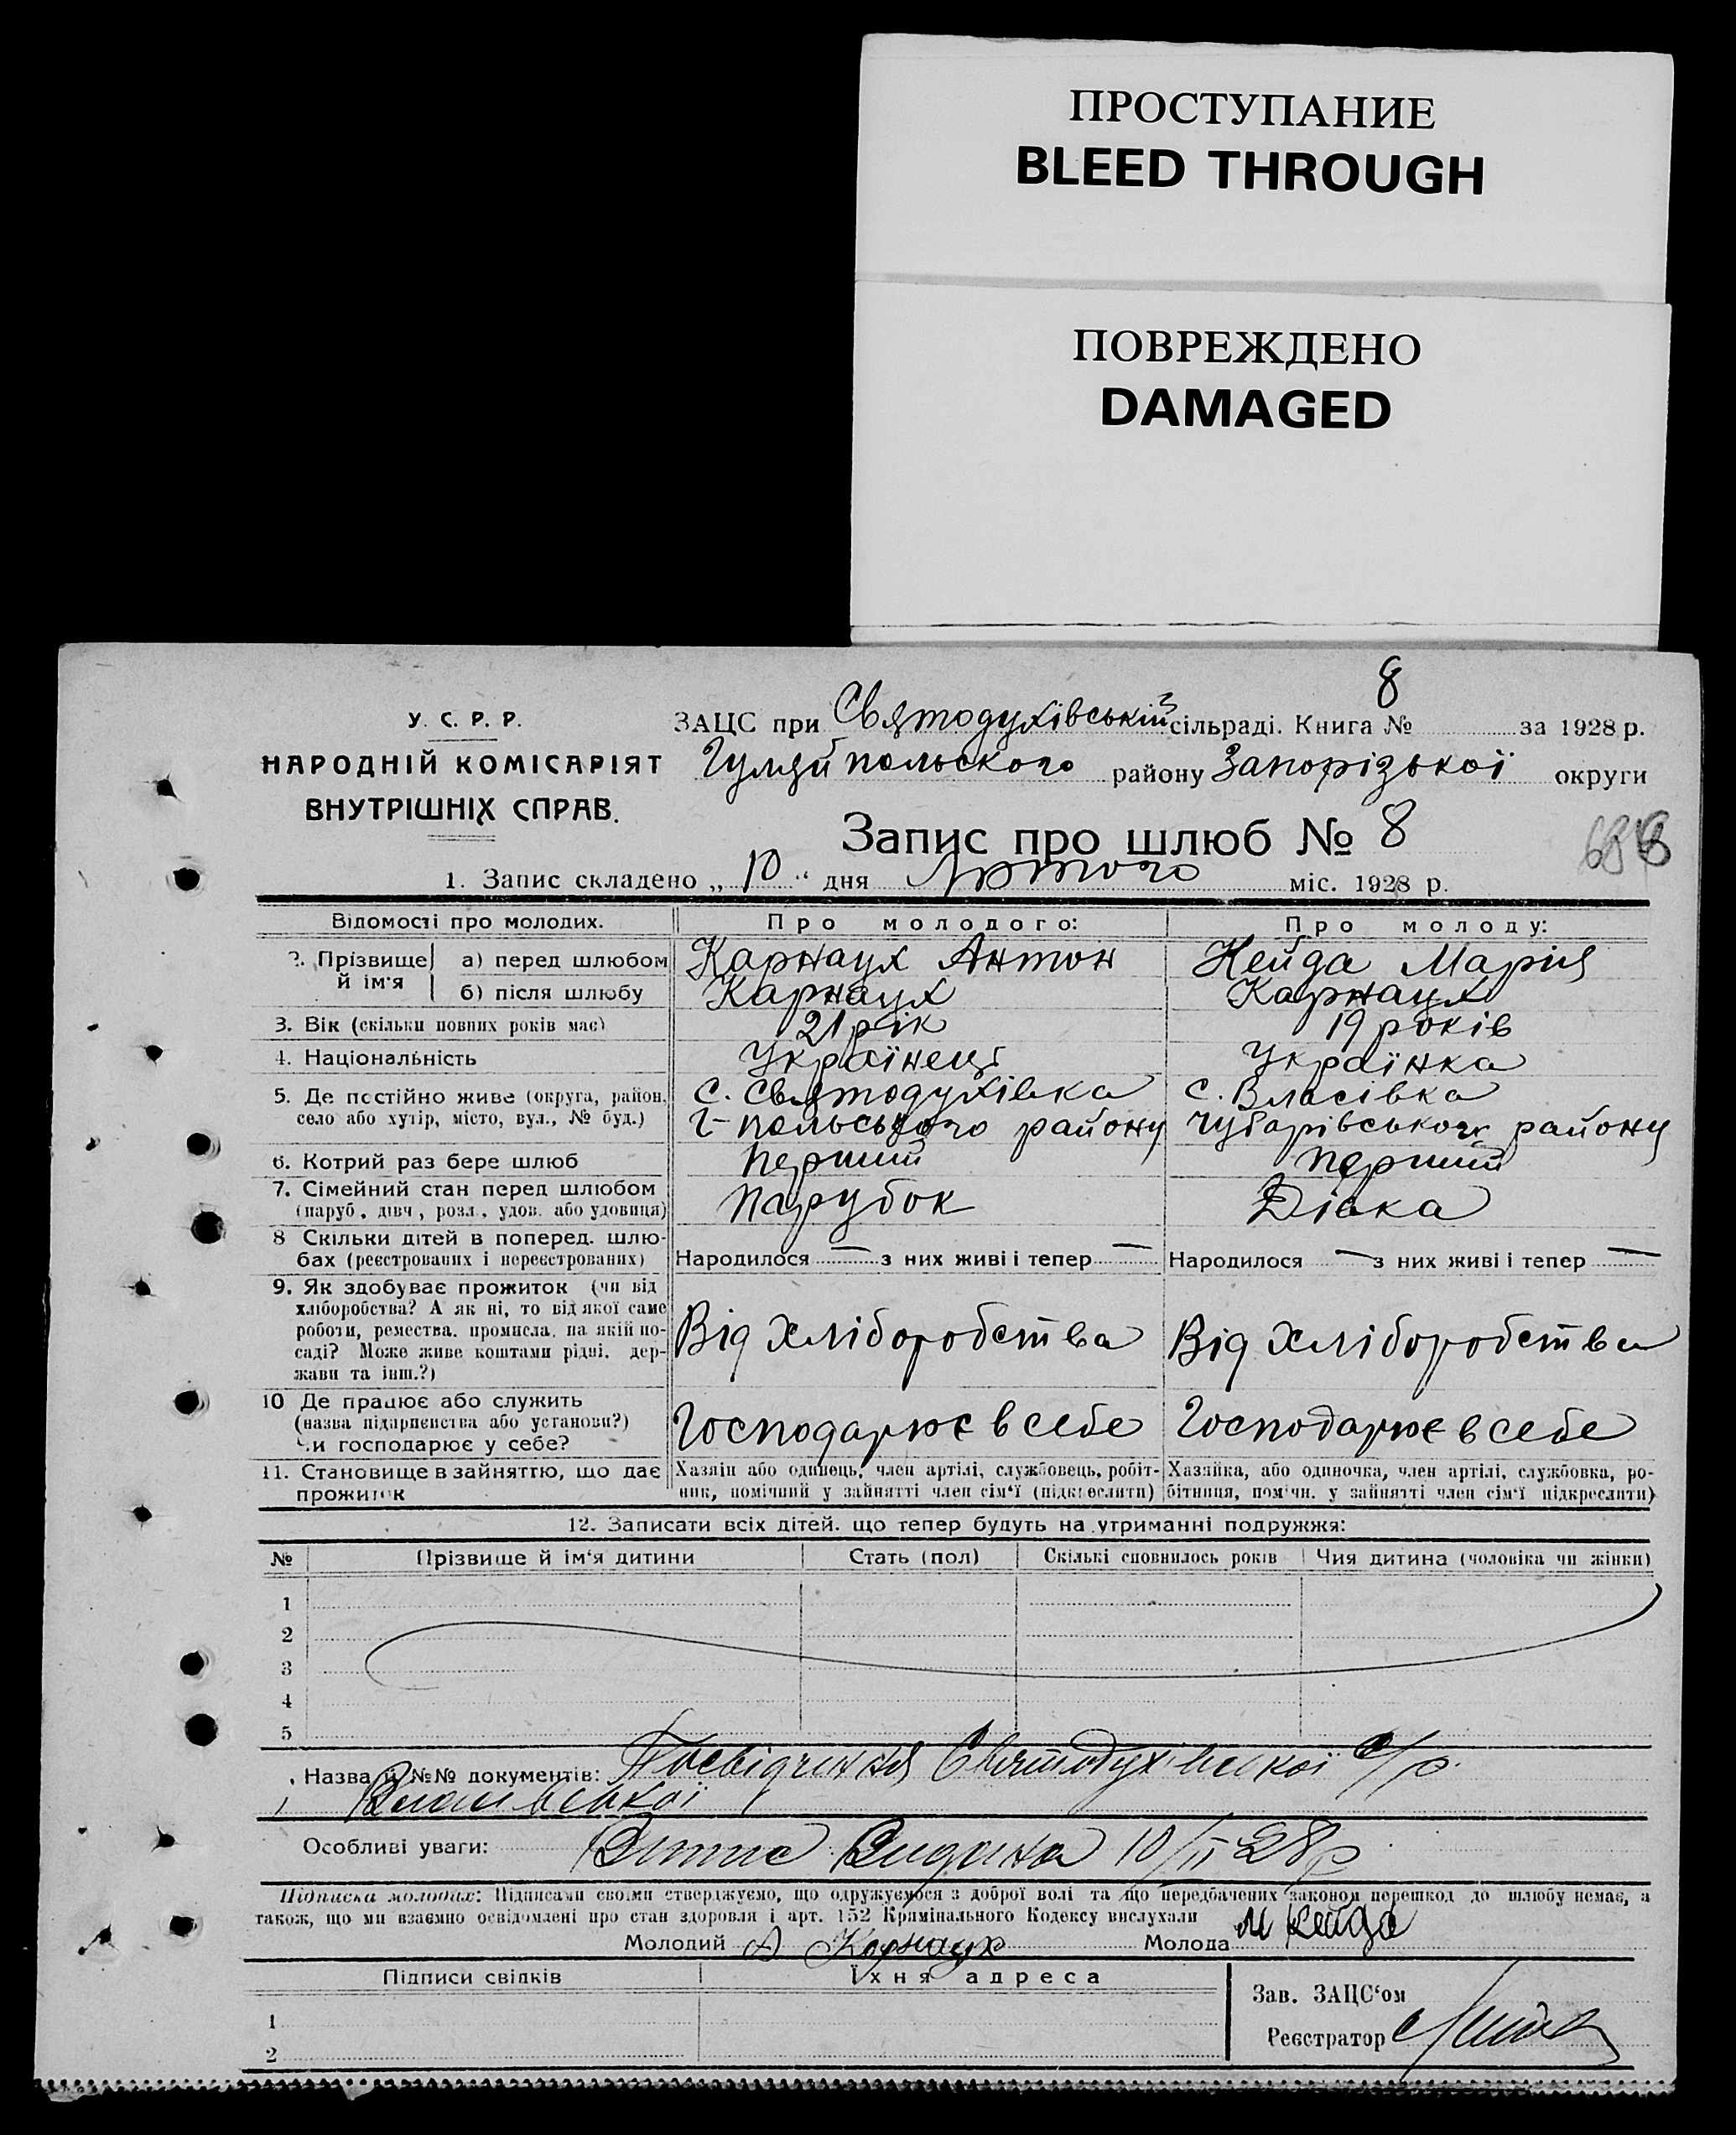 ПРОСТУПАНИЕ
BLEED THROUGH
ПОВРЕЖДЕНО
DAMAGED
У. С. Р. Р.
НАРОДНІЙ КОМІСАРІЯТ
ВНУТРІШНІХ СПРАВ.
ЗАЦС при Святодухівській сільраді. Книга № 8 за 1928 р.
Гуляйпольского району Запорізької округи
Запис про шлюб № 8
1. Запис складено „ 10 “ дня Лютого міс. 1928 р.
Відомості про молодих. Про молодого: Про молоду:
2. Прізвище й ім'я а) перед шлюбом Карнаух Антон Нейда Марія
б) після шлюбу Карнаух Карнаух
3. Вік (скільки повних років має) 21 рік 19 років
4. Національність Українець Українка
5. Де постійно живе (округа, район, с. Святодухівка с. Власівка
село або хутір, місто, вул., № буд.) Г-польського району Чубарівського району
6. Котрий раз бере шлюб Перший Перший
7. Сімейний стан перед шлюбом
(паруб., дівч., розл., удов. або удовиця) Парубок Дівка
8 Скільки дітей в поперед. шлю-
бах (реєстрованих і нереєстрованих) Народилося — з них живі і тепер — Народилося — з них живі і тепер —
9. Як здобуває прожиток (чи від
хліборобства? А як ні, то від якої саме
роботи, ремества. промисла. на якій по-
саді? Може живе коштами рідні. дер-
жави та інш.?) Від хліборобства Від хліборобства
10 Де працює або служить
(назва підприємства або установи?)
Чи господарює у себе? Господарює в себе Господарює в себе
11. Становище в зайняттю, що дає Хазяїн або одинець, член артілі, службовець, робіт- Хазяйка, або одиночка, член артілі, службовка, ро-
прожиток ник, помічний у зайнятті член сім'ї (підкреслити) бітниця, помічн. у зайнятті член сім'ї підкреслити)
12. Записати всіх дітей. що тепер будуть на утриманні подружжя:
№ Прізвище й ім'я дитини Стать (пол) Скількі сповнилось років Чия дитина (чоловіка чи жінки)
1
2
3
4
5
Назва й №№ документів: Посвідчиння Святодухівської с/р.
Власівської
Особливі уваги: Видана 10/II 28р
Підписка молодих: Підписами своїми стверджуємо, що одружуємося з доброї волі та що передбачених законом перешкод до шлюбу немає, а
також, що ми взаємно освідомлені про стан здоровля і арт. 152 Крямінального Кодексу вислухали
Молодий А Карнаух Молода М Нейда
Підписи свідків Їхня адреса
Зав. ЗАЦС'ом
1
Реєстратор
2